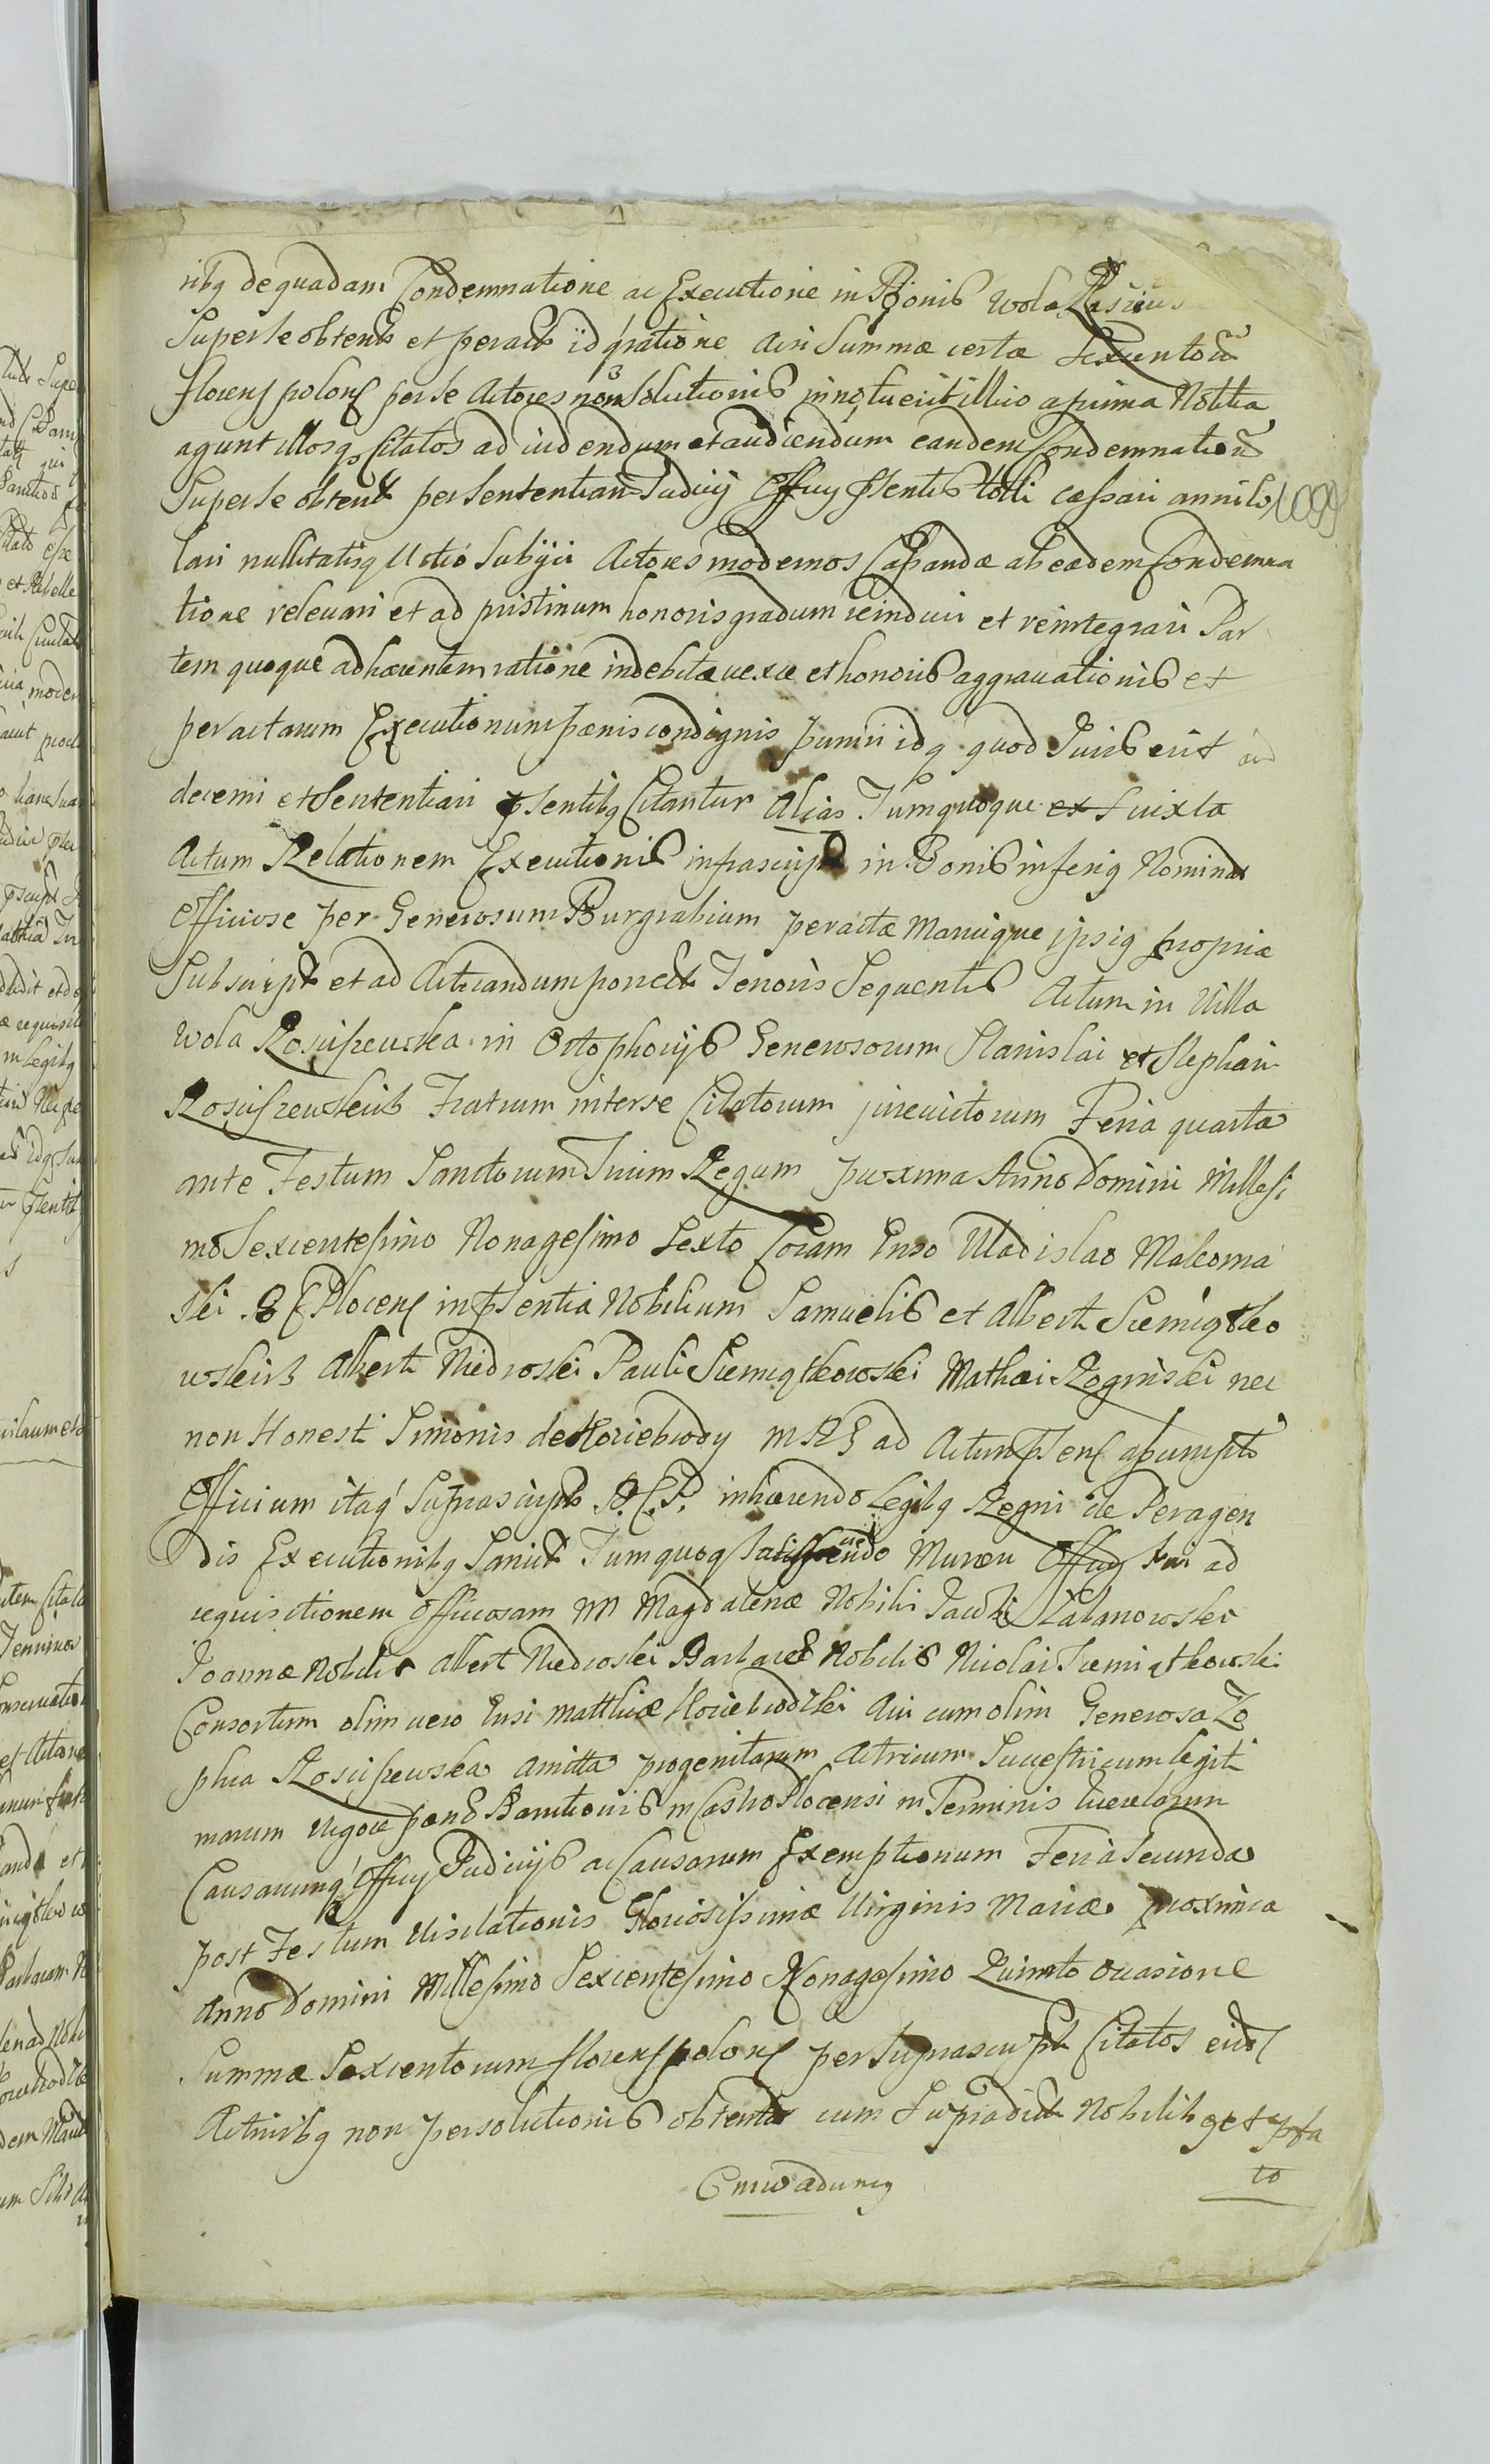 ribq de quadam Condemnatione ac Executione in Bonis Wola
Super se obtent et peract id q ratione Avi Summæ certæ Sexcentoru
florens polons per se Actores non Solutionis innotuerit illico a prima Notitia
agunt illosq Citatos ad videndum et audiendum eandem Condemnation
Super se obtent per Sententiam Judicij Officij psentis tolli cassari annihi
1099
lari nullitatisq Subijci Actores modernos Cassandæ ab eadem Condemna
tione relevari et ad pristinum honoris gradum reinduci et reintegrari Par
tem quoque adhærentem ratione indebitæ vexæ et honoris aggravationis et
peractarum Executionum pænis condignis puniri idq quod Juris erit ad
decerni et Sententiari psentibq Citantur Alias Tum quoque ex Juixta
Actum Relationem Executionis infrascript in Bonis inferiq Nominat
Officiose per Generosum Burgrabium peractæ Manuique ipsiq propriæ
Subscript et ad Acticandum porrect Tenoris Sequentis Actum in Villa
Wola Rosciszewska in Ortophorijs Generosorum Stanislai et Stephani
Rosciszewskich Fratrum inter se Citatorum jurevictorum Feria quarta
ante Festum Sanctorum Trium Regum proxima Anno Domini Millesi
mo Sexcentesimo Nonagesimo Sexto Coram Gnso Uladislao Malcoma
ski B C Plocens in psentia Nobilium Samuelis et Albert Siemiqtko
wskich Albert Niedroski Pauli Siemiqtkowski Mathæi Rogiński nec
non Honesti Simonis de Koziebrody M R G ad Actum psens assumpto
Officium itaq Suprascript B. C. P. inhærendo Legibq Regni de Peragen
dis Executionibq Sancit Tum quoq Satisfaciendo Muneri Officij Sui ad
requisitionem Officiosam NN Magdalenæ Nobilis Jacobi Łabanowski
Joannæ Nobilis Albert Niedroski Barbaræ Nobilis Nicolai Siemiqtkowski
Consortum olim vero Gnsi Matthiæ Koziebrodzki Avi cum olim Generosa Zo
phia Rosciszewska Amitta progenitarum Actricum Successricum legiti
marum Vigore pænæ Bannitionis in Castro Plocensi in Terminis Querelarum
Causarumq Officij Judicijs ac Causarum Exemptionum Feria Secunda
post Festum Visitationis Gloriosissimæ Virginis Mariæ proxima
Anno Domini Millesimo Sexcentesimo Nonagesimo Quinto occasione
Summæ Sexcentorum florens polons per Suprascript Citatos eisd
Actricibq non persolutionis obtentæ cum Supradict Nobilibq et præ
to